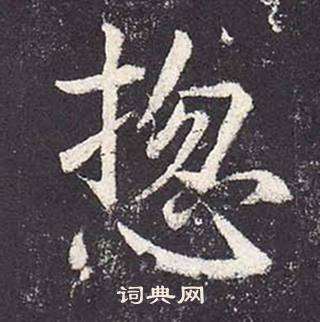 揔
词典网